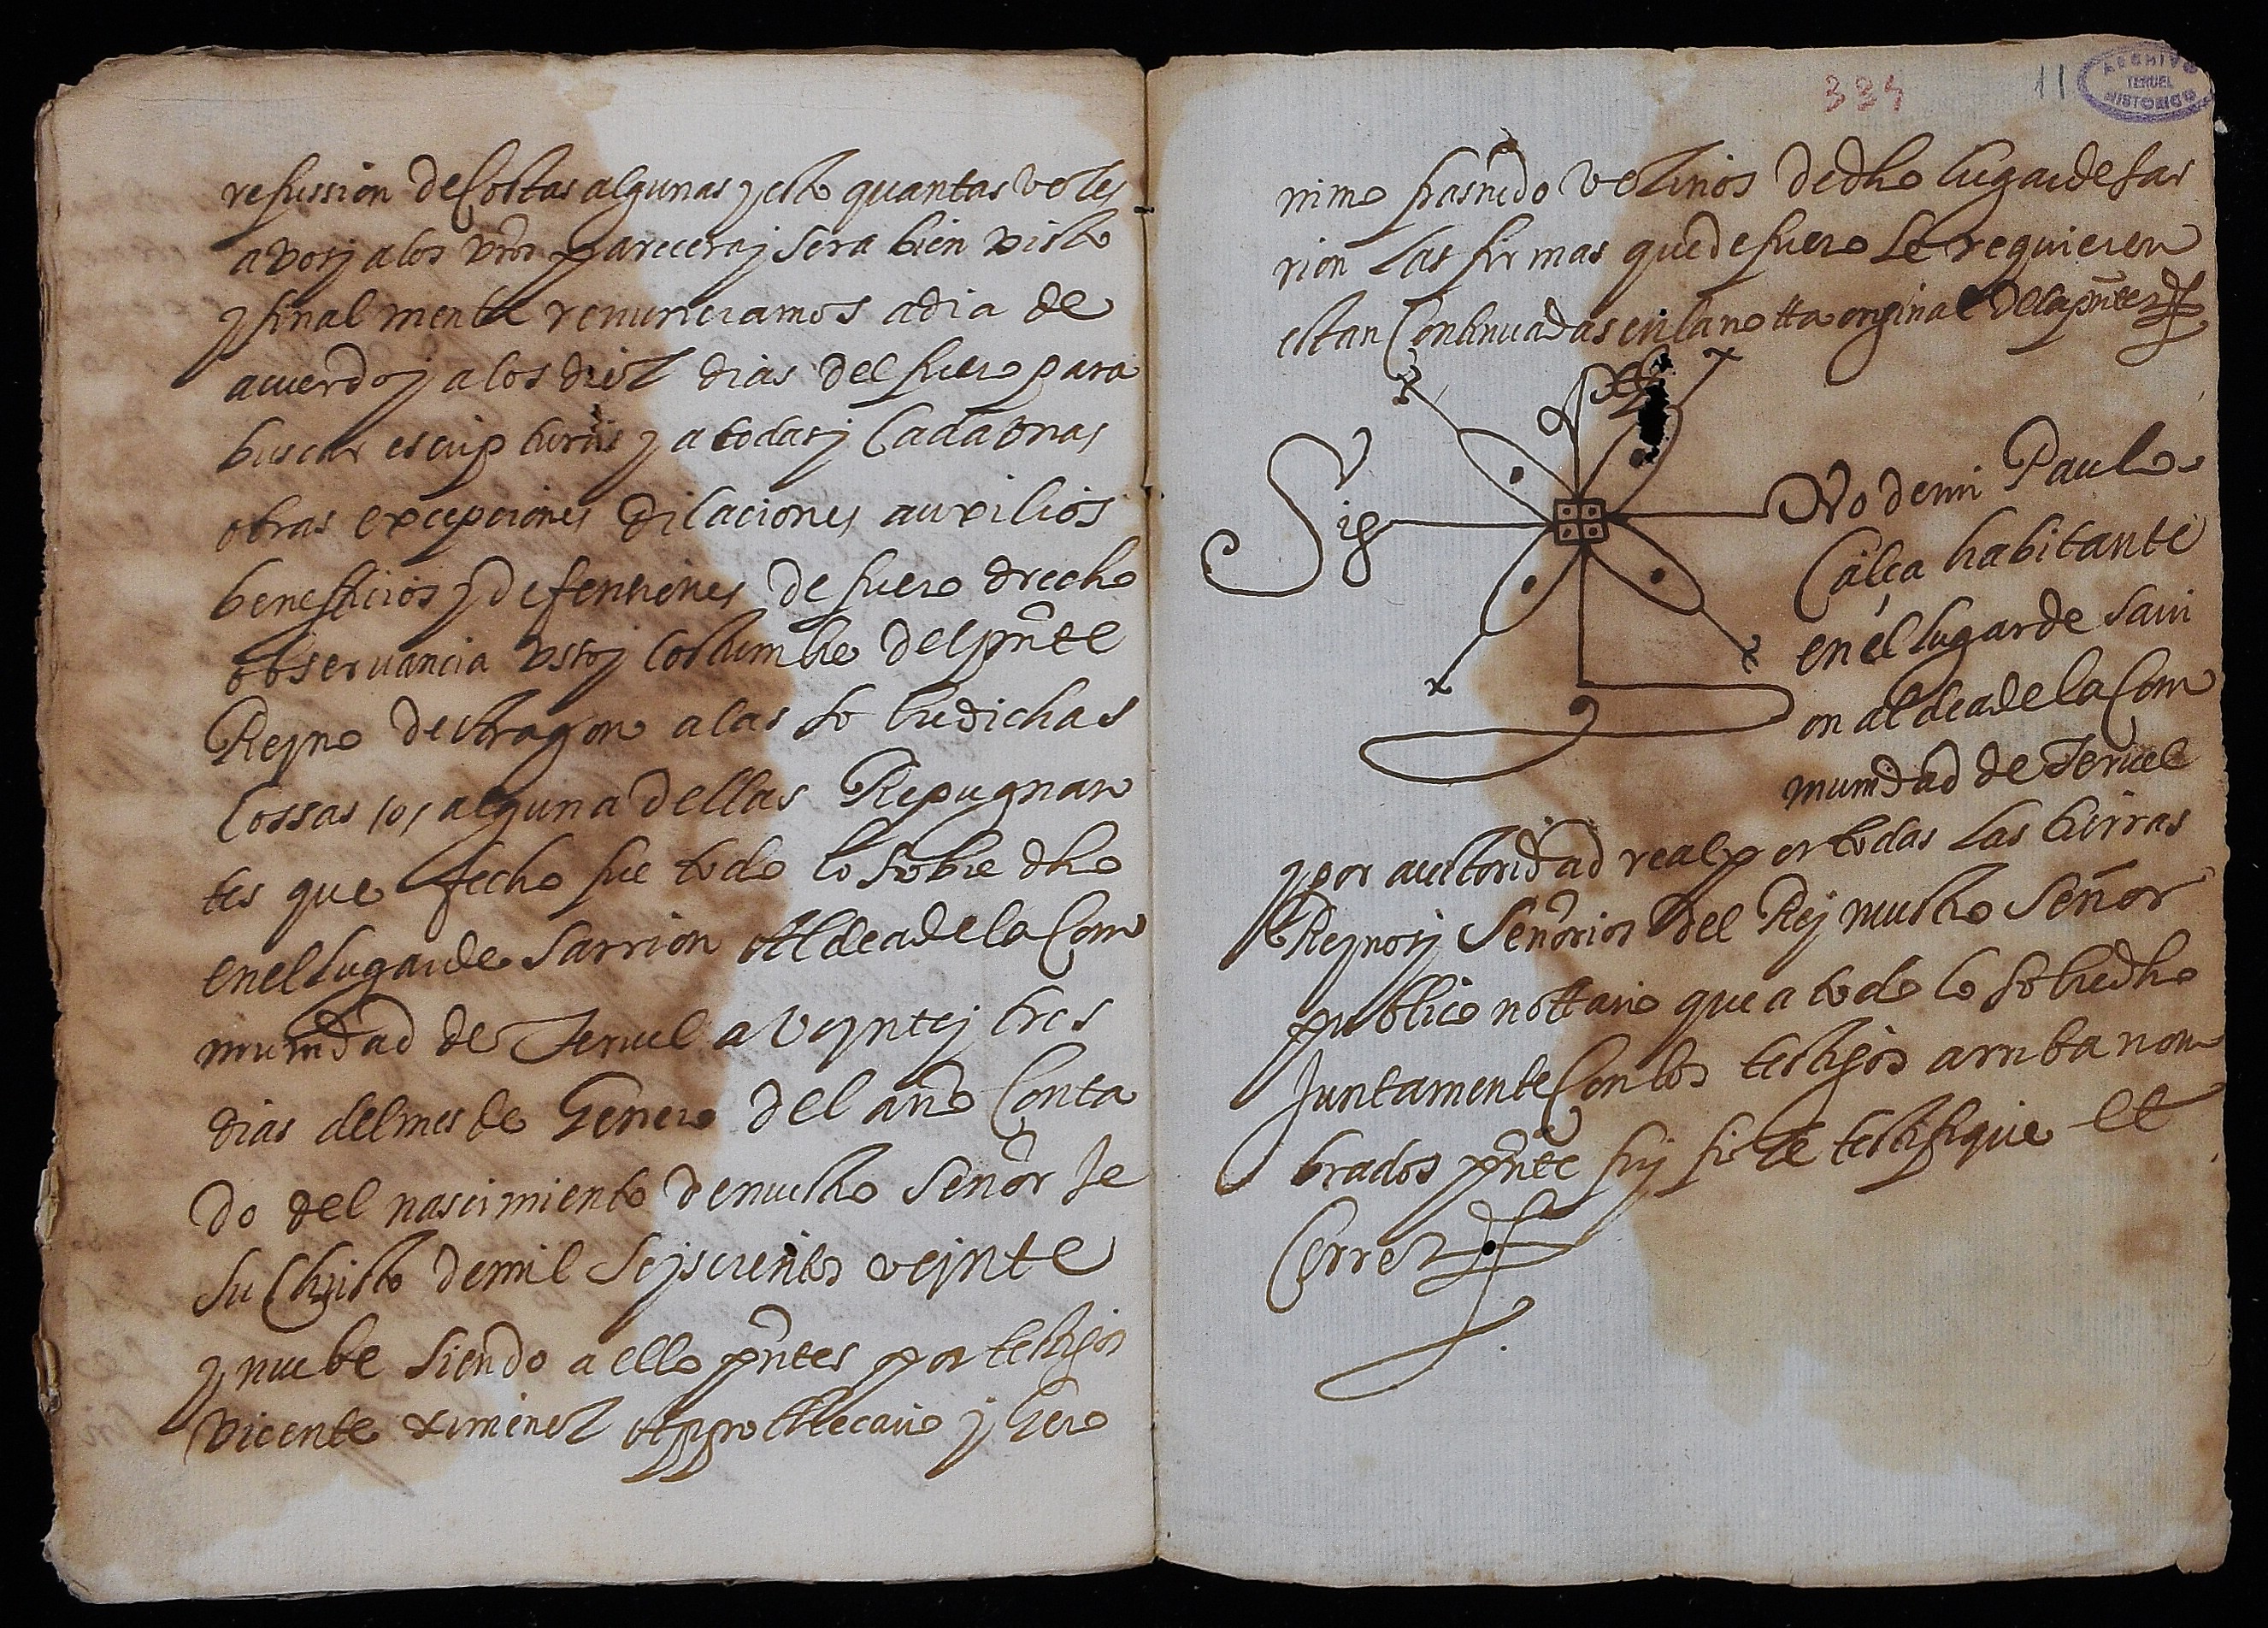 refussion de Costas algunas y esto quantas vezes
a vos y a los vros parecera y sera bien visto
y finalmente renunciamos a dia de
acuerdo y a los diez dias del fuero para
buscar escripturas y a todas y cada unas
otras excepciones dilaciones auxilios
beneficios y defensiones de fuero drecho
observancia uso y costumbre del pnte
Reyno de Aragon a las sobredichas
Cossas /o/ alguna dellas Repugnan
tes que fecho fue todo lo sobre dho
en el lugar de Sarrion Aldea de la Com
munidad de Teruel a veynte y tres
dias del mes de Genero del año Conta
do del nascimiento de nuestro Señor Je
su Christo de mil seyscientos veynte
y nuebe siendo a ello pntes por testigos
Vicente Ximenez Appothecario y Gero
334
11
ARCHIVO
TERUEL
HISTORICO
nimo vezinos de dho lugar de Sar
rion las firmas que de fuero se requieren
estan Continuadas en la notta original de la pnte
Sig No de mi Paulo
Calça habitante
en el lugar de Sarri
on aldea de la Com
munidad de Teruel
y por auctoridad real por todas las tierras
Reynos y Señorios del Rey nuestro Señor
publico nottario que a todo lo sobredho
Juntamente Con los testigos arriba nom
brados pnte fuy si ze testifique et
Cerrez